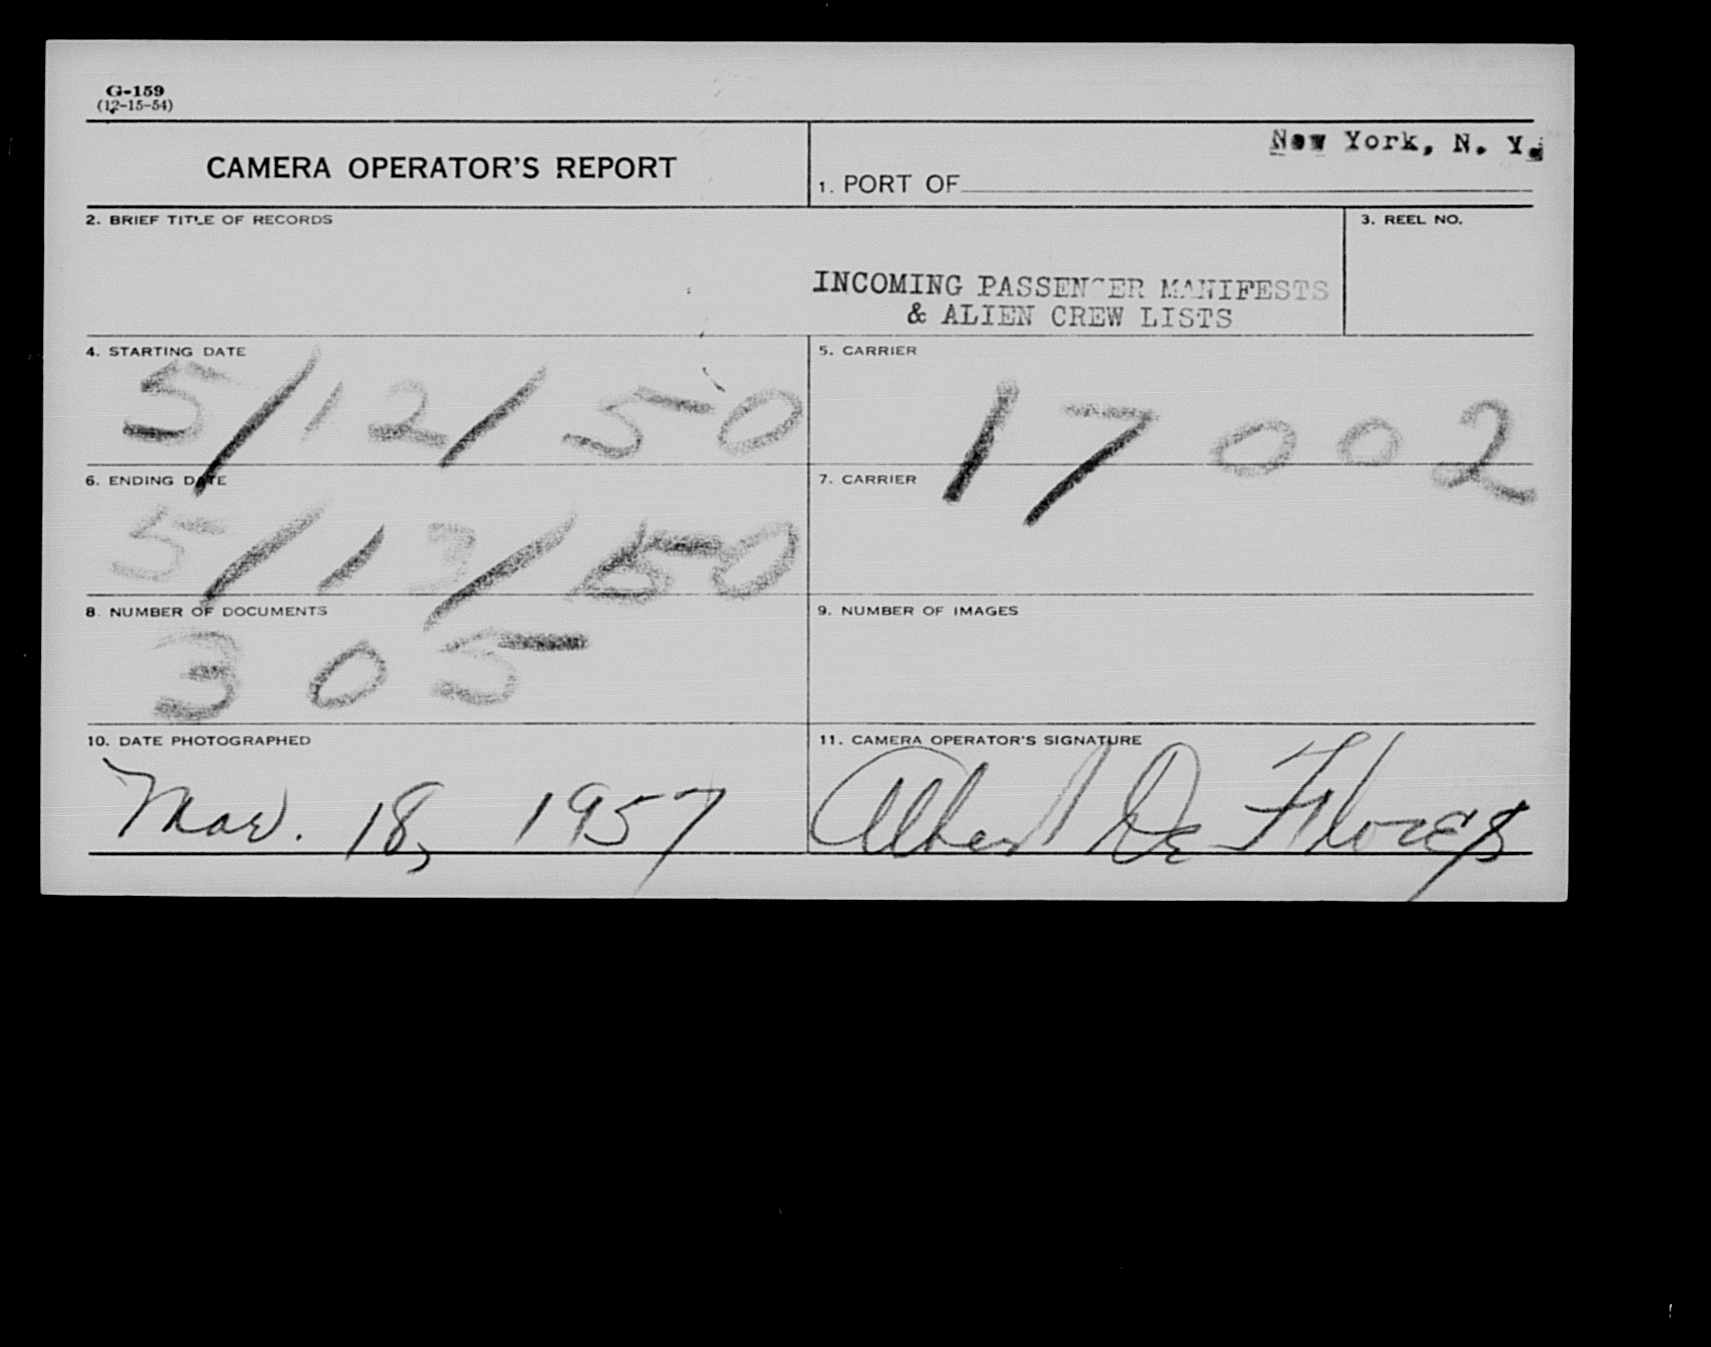 G-159
(12-15-54)
CAMERA OPERATOR'S REPORT
New York, N. Y.
1. PORT OF
2. BRIEF TITLE OF RECORDS
3. REEL NO.
INCOMING PASSENGER MANIFESTS
& ALIEN CREW LISTS
4. STARTING DATE
5/12/50
5. CARRIER
17002
6. ENDING DATE
5/13/50
7. CARRIER
8. NUMBER OF DOCUMENTS
305
9. NUMBER OF IMAGES
10. DATE PHOTOGRAPHED
Mar. 18, 1957
11. CAMERA OPERATOR'S SIGNATURE
Albert De Flores